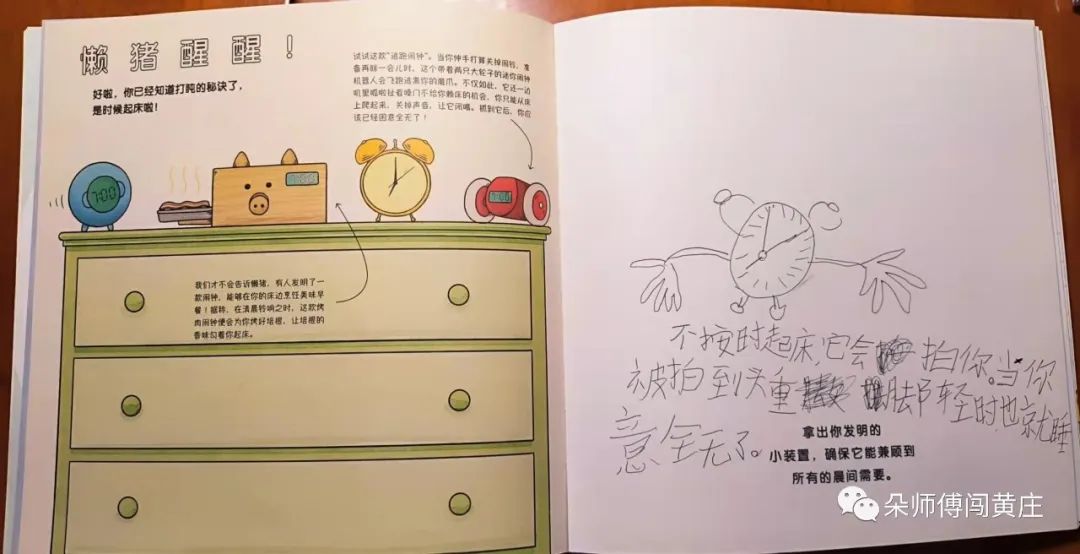 懒猪醒醒！
好啦，你已经知道打盹的秘诀了，
是时候起床啦！
试试这款“逃跑闹钟”。当你伸手打算关掉闹铃，准
备再眯一会儿时，这个带着两只大轮子的迷你闹钟
机器人会飞跑逃离你的魔爪。不仅如此，它还一边
叽里呱啦扯着嗓门不给你赖床的机会，你只能从床
上爬起来，关掉声音，让它闭嘴。抓到它后，你应
该已经困意全无了！
7:00
7:00
7:00
我们才不会告诉懒猪，有人发明了一
款闹钟，能够在你的床边烹饪美味早
餐！据称，在清晨铃响之时，这款烤
肉闹钟便会为你烤好培根，让培根的
香味勾着你起床。
不按时起床，它会拍你。当你
被拍到头重脚轻时也就睡
意全无了。
拿出你发明的
小装置，确保它能兼顾到
所有的晨间需要。
朵师傅闯黄庄